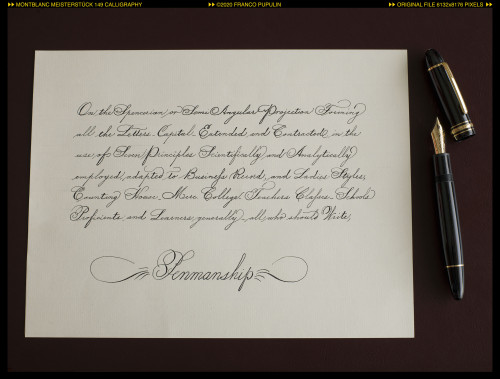 MONTBLANC MEISTERSTÜCK 149 CALLIGRAPHY
©2020 FRANCO PUPULIN
ORIGINAL FILE 6132x8176 PIXELS
On the Spencerian, or Semi Angular Projection Forming
all the Letters, Capital, Extended, and Contracted, in the
use, of Seven Principles Scientifically and Analytically
employed, adapted to Business Record, and Ladies Styles,
Counting House, Merc. College Teachers Classes, Schools
Proficients and Learners, generally, all, who should Write,
Penmanship